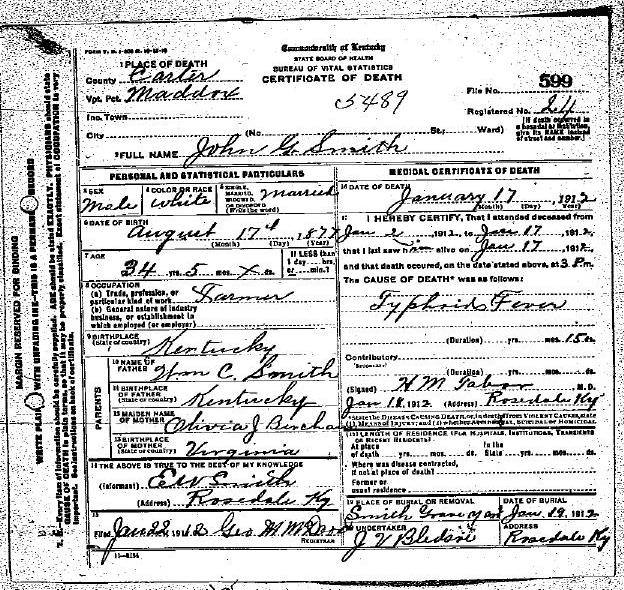 FORM V. S. 1-
Commonwealth of Kentucky
STATE BOARD OF HEALTH
BUREAU OF VITAL STATISTICS
CERTIFICATE OF DEATH
1 PLACE OF DEATH
County Carter
Vot. Pct. Maddox
Inc. Town
City (No. St.; Ward)
5489
599
File No.
Registered No. 24
[If death occurred in a hospital or institution, give its NAME instead of street and number.]
2 FULL NAME John G Smith
PERSONAL AND STATISTICAL PARTICULARS
3 SEX Male
4 COLOR OR RACE White
5 SINGLE, MARRIED, WIDOWED OR DIVORCED (Write the word) Married
6 DATE OF BIRTH
August 17th, 1877
(Month) (Day) (Year)
7 AGE
34 yrs. 5 mos. x ds.
If LESS than 1 day, hrs. or min.?
8 OCCUPATION
(a) Trade, profession, or particular kind of work Farmer
(b) General nature of industry business, or establishment in which employed (or employer)
9 BIRTHPLACE
(State or country) Kentucky
PARENTS
10 NAME OF FATHER Wm C. Smith
11 BIRTHPLACE OF FATHER (State or country) Kentucky
12 MAIDEN NAME OF MOTHER Olivia J
13 BIRTHPLACE OF MOTHER (State or country) Virginia
14 THE ABOVE IS TRUE TO THE BEST OF MY KNOWLEDGE
(Informant) E W Smith
(Address) Rosedale Ky
15
Filed Jan 22 1912 Geo M
REGISTRAR
11-8184
MEDICAL CERTIFICATE OF DEATH
16 DATE OF DEATH
January 17, 1912
(Month) (Day) (Year)
17 I HEREBY CERTIFY, That I attended deceased from
Jan 2, 1912, to Jan 17, 1912
that I last saw him alive on Jan 17, 1912
and that death occured, on the date stated above, at 3 P m.
The CAUSE OF DEATH* was as follows:
Typhoid Fever
(Duration) yrs. mos. 15 ds.
Contributory
(Duration) yrs. mos. ds.
(Signed) H M Tabor M.D.
Jan 18, 1912 (Address) Rosedale Ky
*State the DISEASE CAUSING DEATH, or, in deaths from VIOLENT CAUSES, state (1) MEANS OF INJURY; and (2) whether ACCIDENTAL, SUICIDAL or HOMICIDAL
18 LENGTH OF RESIDENCE (FOR HOSPITALS, INSTITUTIONS, TRANSIENTS OR RECENT RESIDENTS)
At place of death yrs. mos. ds. In the State yrs. mos. ds.
Where was disease contracted, if not at place of death?
Former or usual residence
19 PLACE OF BURIAL OR REMOVAL
Smith Grave yard
DATE OF BURIAL
Jan. 19, 1912
20 UNDERTAKER
J V Bledsoe
ADDRESS
Rosedale Ky
MARGIN RESERVED FOR BINDING
WRITE PLAINLY WITH UNFADING INK—THIS IS A PERMANENT RECORD
N. B. Every item of information should be carefully supplied. AGE should be stated EXACTLY. PHYSICIANS should state
CAUSE OF DEATH in plain terms, so that it may be properly classified. Exact statement of OCCUPATION is very
important. See instructions on back of certificate.